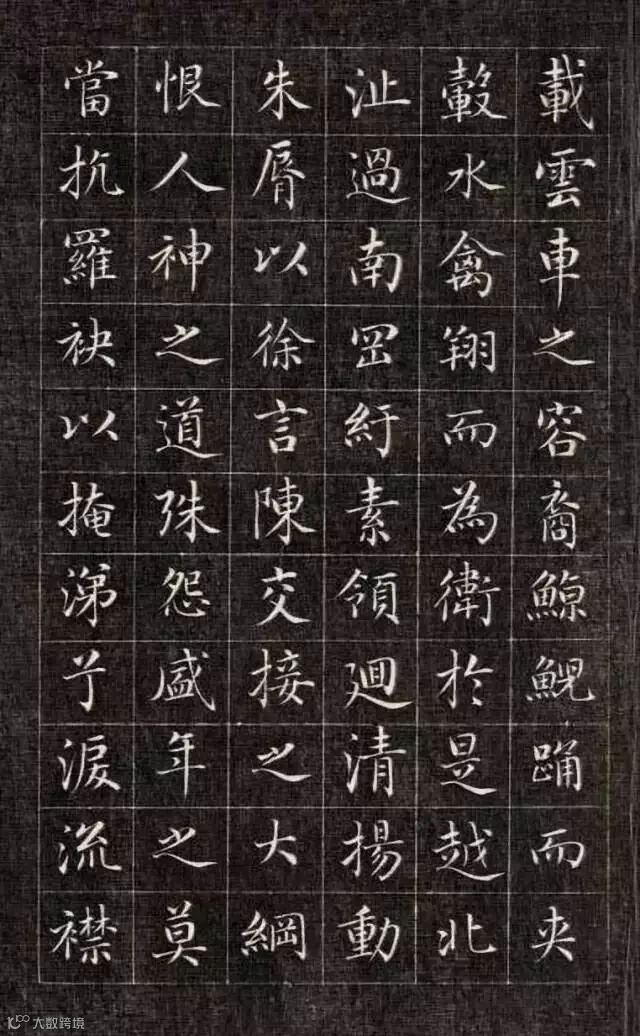 載雲車之容裔鯨鯢踊而夹
轂水禽翔而為衛於是越北
沚過南岡紆素領廻清揚動
朱脣以徐言陳交接之大綱
恨人神之道殊怨盛年之莫
當抗羅袂以掩涕兮淚流襟
大数跨境